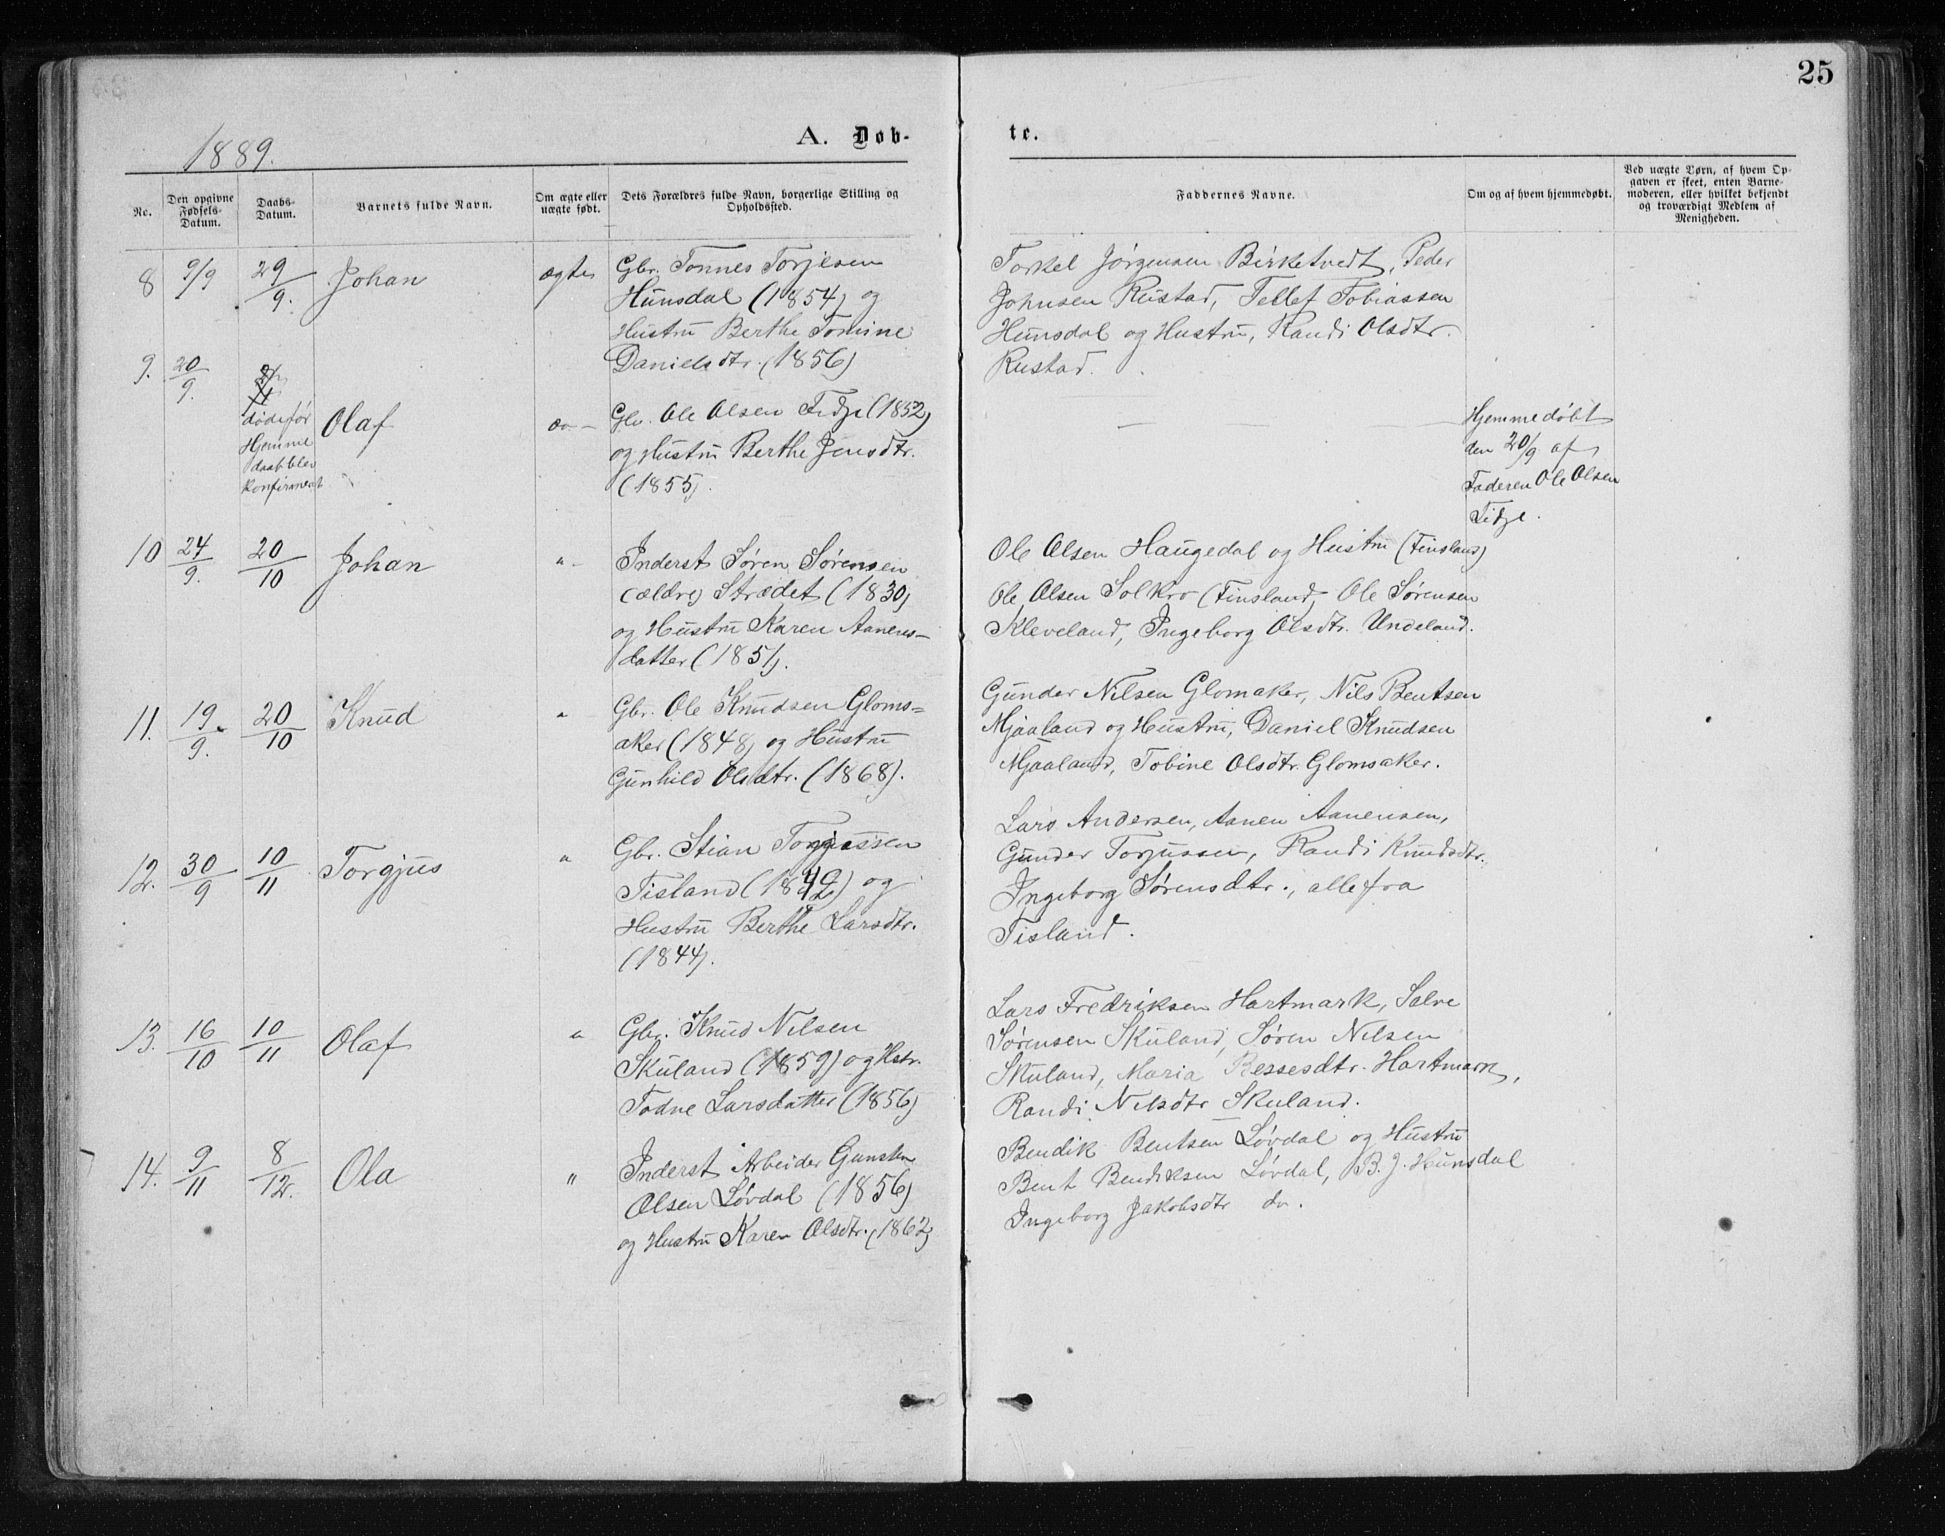 25
1889.
A. Døb-
te.
No.
Den opgivne Fødsels-Datum.
Daabs-Datum.
Barnets fulde Navn.
Om ægte eller uægte født.
Dets Forældres fulde Navn, borgerlige Stilling og Opholdssted.
Faddernes Navne.
Om og af hvem hjemmedøbt.
Ved uægte Børn, af hvem Opgaven er skeet, enten Barnemoderen, eller hvilket bekjendt og troværdigt Medlem af Menigheden.
8 9/9 29/9. Johan ægte
Gbr. Tønnes Torjesen
Hunsdal (1854) og
Hustru Berthe Tomine
Danielsdtr. (1856)
Torkel Jørgensen Birketvedt, Peder
Johnsen Rustad, Tellef Tobiassen
Hunsdal og Hustru, Randi Olsdtr.
Rustad.
9. 20/9.
døde før
Hjemme
daab blev
konfirmert
Olaf do —
Gbr. Ole Olsen Fidje (1852)
og Hustru Berthe Jensdtr.
(1855).
— — —
Hjemmedøbt
den 20/9 af
Faderen Ole Olsen
Fidje.
10 24/9. 20/10 Johan "
Inderst Søren Sørensen
(ældre) Strædet (1830)
og Hustru Karen Aanens-
datter (1851).
Ole Olsen Haugedal og Hustru (Finsland)
Ole Olsen Solkro (Finsland) Ole Sørensen
Kleveland, Ingeborg Olsdtr. Undeland.
11. 19/9. 20/10 Knud "
Gbr. Ole Knudsen Gloms-
aker (1848) og Hustru
Gunhild Olsdtr. (1868).
Gunder Nilsen Glomaker, Nils Bentsen
Mjaaland og Hustru, Daniel Knudsen
Mjaaland, Tobine Olsdtr. Glomsaker.
12. 30/9 10/11 Torgjus "
Gbr. Stian Torjussen
Tisland (1842) og
Hustru Berthe Larsdtr.
(1844).
Lars Andersen, Aanen Aanensen,
Gunder Torjussen, Randi Knudsdtr.
Ingeborg Sørensdtr., alle fra
Tisland.
13. 16/10 10/11 Olaf "
Gbr. Knud Nilsen
Skuland (1859) og Hstr.
Todne Larsdatter (1856)
Lars Fredriksen Hartmark, Salve
Sørensen Skuland, Søren Nilsen
Skuland, Maria Bessesdtr. Hartmark,
Randi Nilsdtr Skuland.
14. 9/11 8/12. Ola "
Inderst Arbeider Gunsten
Olsen Løvdal (1856)
og Hustru Karen Olsdtr. (1862)
Bendik Bentsen Løvdal og Hustru
Bent Bendiksen Løvdal, B. J. Hunsdal
Ingeborg Jakobsdtr do.